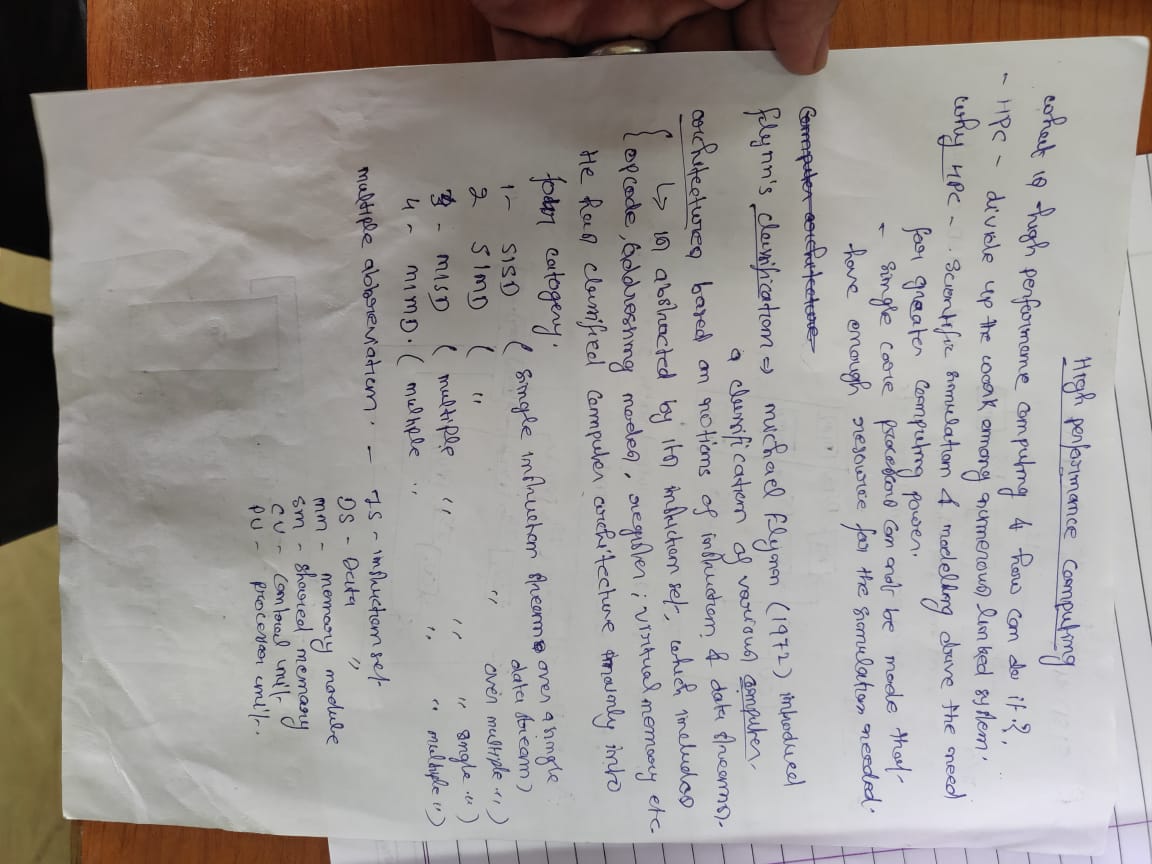 High performance computing
what is high performance computing & how can do it?.
- HPC - divide up the work among numerous linked system.
why HPC - . scientific simulation & modelling drive the need
for greater computing power.
- single core processors can not be made that
have enough resource for the simulation needed.
Computer architecture
Flynn's classification => michael flynn (1972) introduced
a classification of various computer
architectures based on notions of instruction & data streams.
↳ is abstracted by its instruction set, which includes
{opcode, addressing modes, register, virtual memory etc
He has classified computer architecture mainly into
four catogery.
1- SISD ( single instruction stream over a single
data stream)
2 SIMD ( " " over multiple " )
3 - MISD ( multiple " " " single " )
4 - MIMD. ( multiple " " " multiple " )
multiple abbreviation. - IS - instruction set
DS - Data "
mm - memory module
sm - shared memory
CU - control unit.
PU - processor unit.